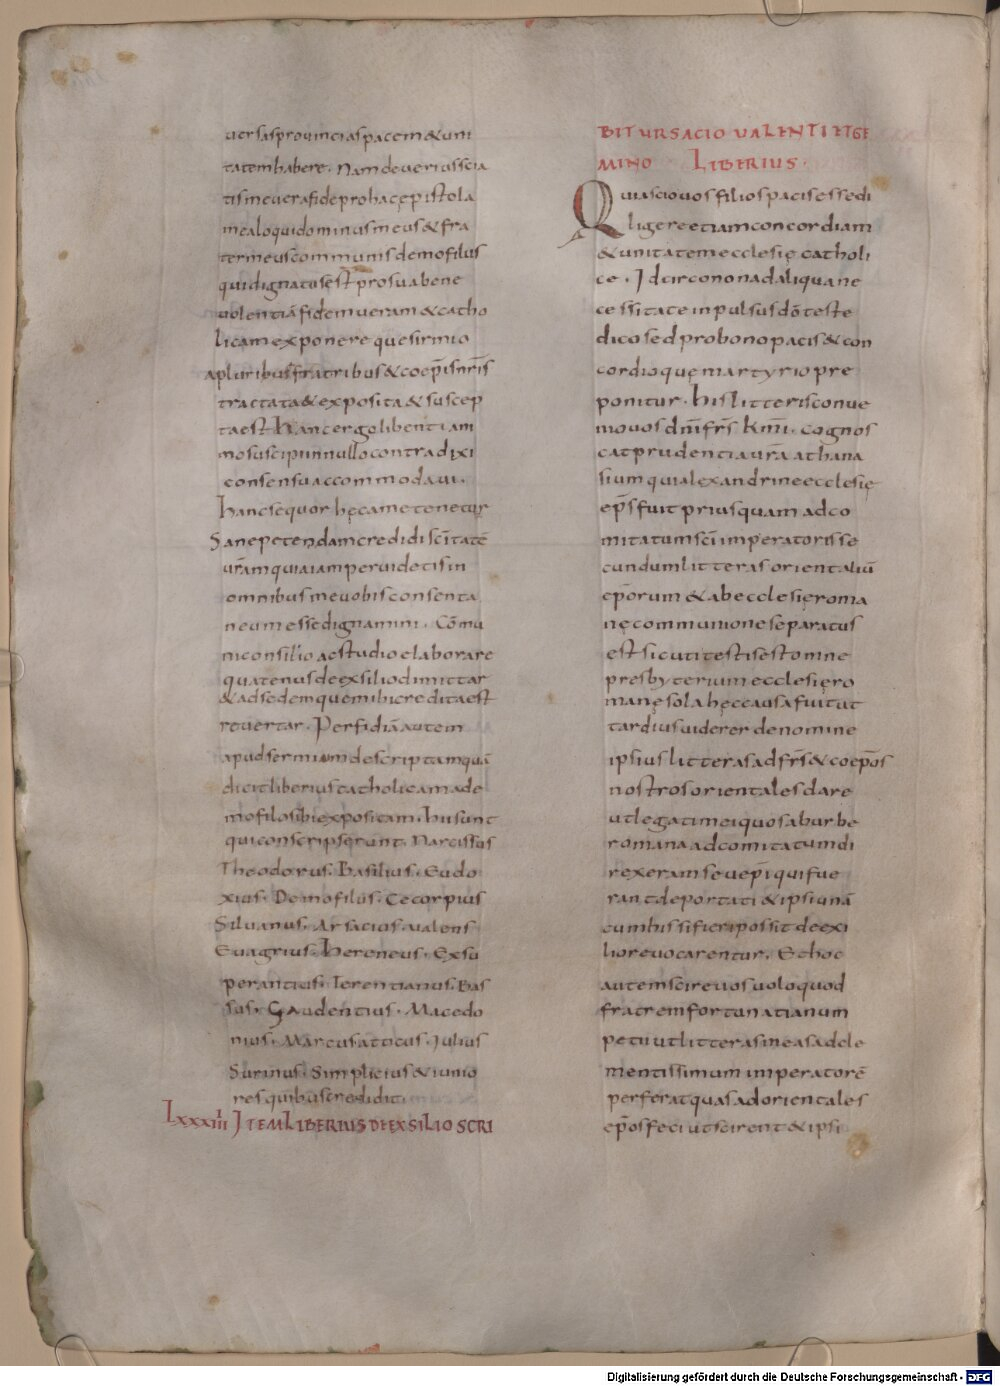 uersasprouinciaspacem&uni
tatemhabere. Namdeueriusscia
tismeuerafideprohacepistola
mealoquidominusmeus&fra
termeuscommunisdemofilus
quidignatusestprosuabene
uolentiāfidemueram&catho
licamexponerequesirmio
apluribusfratribus&coep̄isnr̄is
tractata&exposita&suscep
taesthancergolibentiam
mosuscipiinnullocontradixi
consensuaccommodaui.
hancsequorhęcametenetur
Sanepetendamcrededisc̄itatē
ur̄amquiaiamperuidetisin
omnibusmeuobisconsenta
neumessedignamini. Cōmu
niconsilioacstudioelaborare
quatenusdeexsiliodimittar
&adsedemquemibicreditaest
reuertar. Perfidiāautem
apudsermiumdescriptamquā
dicitliberiuscatholicamade
mofilosibiexpositam. hiisunt
quiconscripserunt. Narcissus
Theodorus. Basilius. Eudo
xius. Demofilus. Cecorpius
Siluanus. Arsacius. ualens
Euagrius. hereneus. Exsu
perantius. Terentianus. Bas
sus. Gaudentius. Macedo
nius. Marcusatticus. Iulius
Surinus. Simplicius&iunio
resquibuscredidit.
Lxxxiii ItemLIBERIUSDEEXSILIOSCRI
BITURSACIOUALENTIETGE
MINO LIBERIUS.
Quiasciouosfiliospacisessedi
ligereetiamconcordiam
&unitatemecclesięcatholi
ce. Idcircononadaliquane
cessitateinpulsusdōteste
dicosedprobonopacis&con
cordioquęmartyriopre
ponitur. hislitterisconue
niouosdn̄ifr̄s km̄i. cognos
catprudentiaur̄aathana
siumquialexandrineecclesię
ep̄sfuitpriusquamadco
mitatumsc̄iimperatorisse
cundumlitterasorientaliū
ep̄orum&abecclesięroma
nęcommunioneseparatus
estsicutitestisestomne
presbyteriumecclesięro
manęsolahęccausafuitut
tardiusuiderer denomine
ipsiuslitterasadfr̄s&coep̄os
nostrosorientalesdare
utlegatimeiquosaburbe
romanaadcomitatumdi
rexeramseuep̄iquifue
rantdeportati&ipsiunā
cumhissifieripossitdeexi
liореuocarentur. Ethoc
autemscireuosuoloquod
fratremfortunatianum
petiiutlitterasmeasadcle
mentissimumimperatorē
perferatquasadorientales
ep̄osfeciutscirent&ipsi
Digitalisierung gefördert durch die Deutsche Forschungsgemeinschaft - DFG